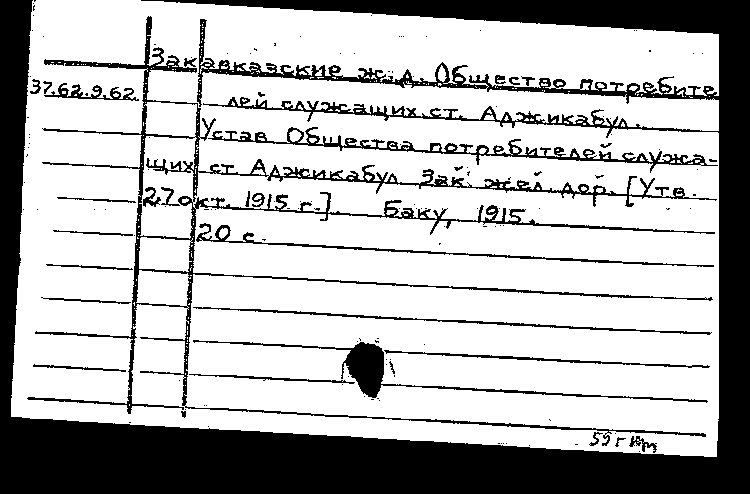 Закавказские ж.д. Общество потребите
37.62.9.62. лей служащих ст. Аджикабул.
Устав Общества потребителей служа-
щих ст Аджикабул Зак. жел. дор. [Утв.
27 окт. 1915 г.]. Баку, 1915.
20 с.
59 г